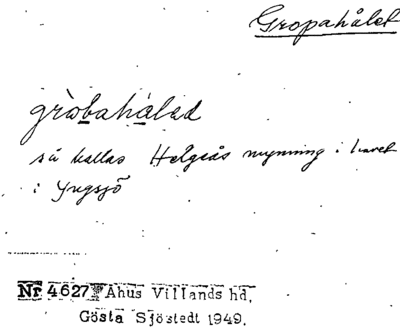 Gropahålet
gròbahålad
så kallas Helgeås mynning i havet
i Yngsjö
Nr 4627 Åhus Villands hd,
Gösta Sjöstedt 1949.